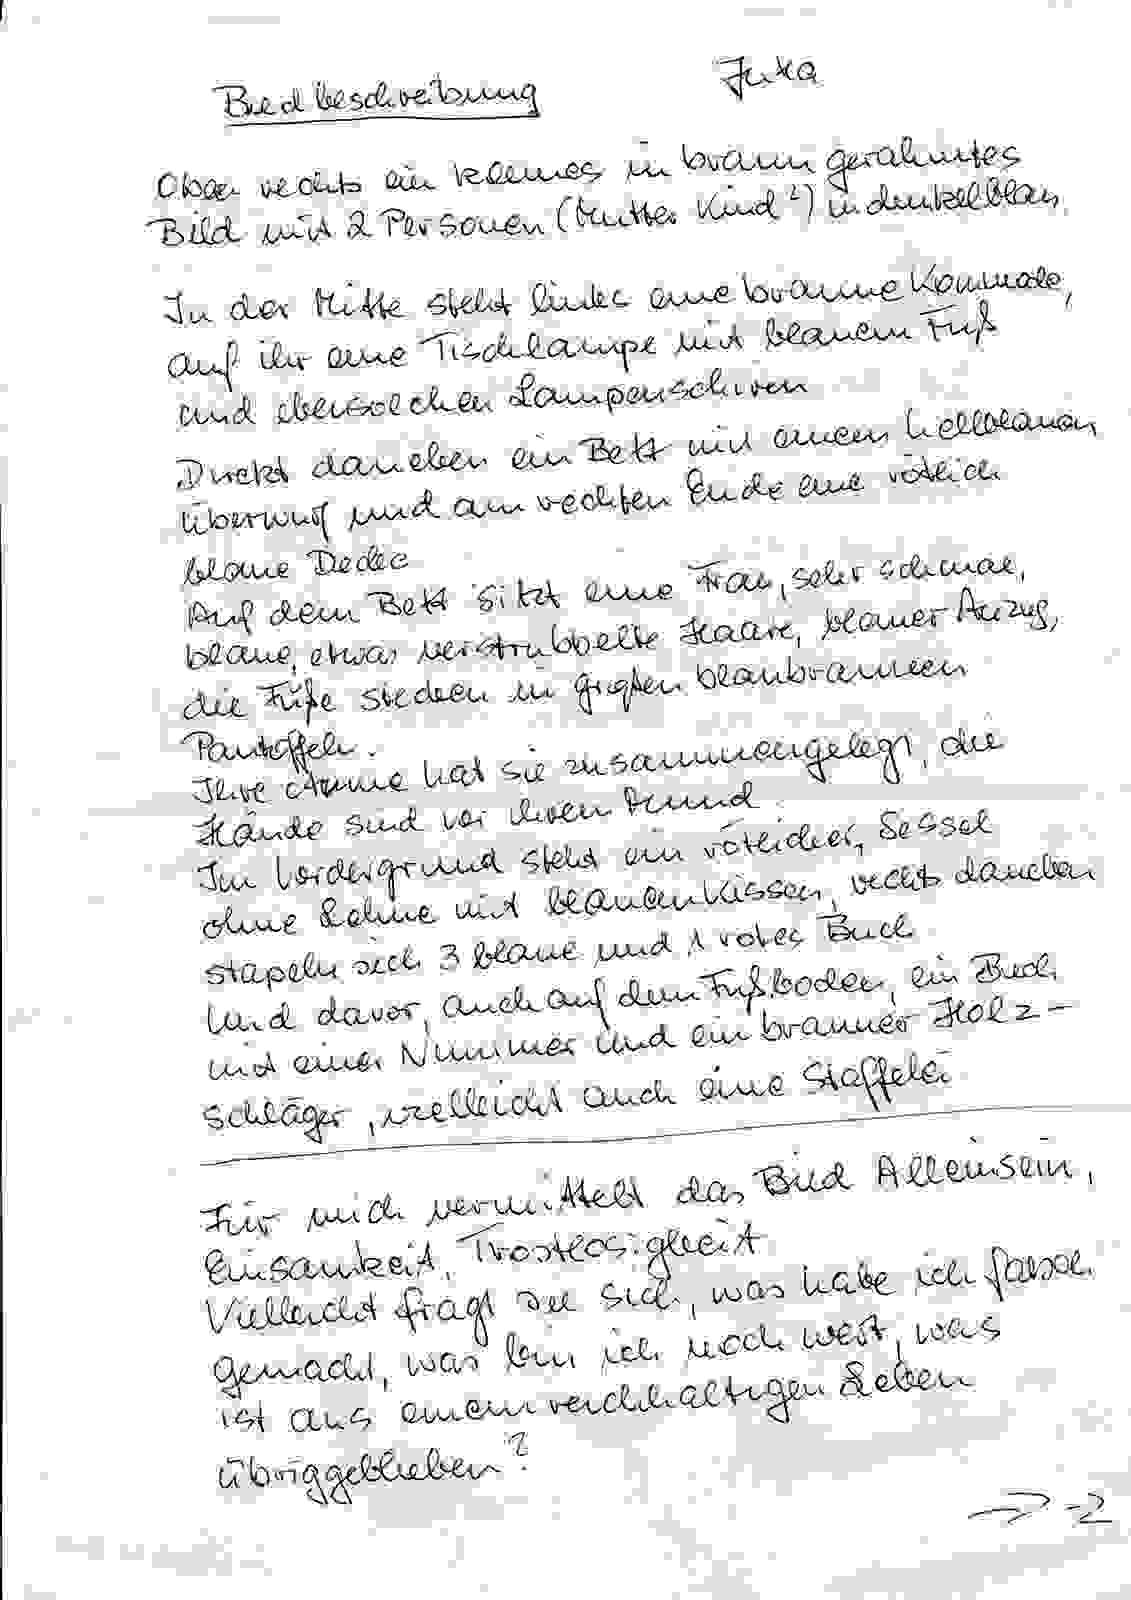 Bildbeschreibung
Jutta
Oben rechts ein kleines in braun gerahmtes
Bild mit 2 Personen (Mutter Kind?) in dunkelblau
In der Mitte steht links eine braune Kommode,
auf ihr eine Tischlampe mit blauem Fuß
und ebensolchen Lampenschirm
Direkt daneben ein Bett mit einem hellblauen
Überwurf und am rechten Ende eine rötlich
blaue Decke
Auf dem Bett sitzt eine Frau, sehr schmal,
blaue, etwas verstrubbelte Haare, blauer Anzug,
die Füße stecken in großen blaubraunen
Pantoffeln.
Ihre Arme hat sie zusammengelegt, die
Hände sind vor ihrem Mund.
Im Vordergrund steht ein rötlicher, Sessel
ohne Lehne mit blauem Kissen, rechts daneben
stapeln sich 3 blaue und 1 rotes Buch
Und davor, auch auf dem Fußboden, ein Buch
mit einer Nummer und ein brauner Holz-
schläger, vielleicht auch eine Staffelei
Für mich vermittelt das Bild Alleinsein,
Einsamkeit, Trostlosigkeit
Vielleicht fragt sie sich, was habe ich falsch
gemacht, was bin ich noch wert, was
ist aus einem reichhaltigen Leben
übriggeblieben?
→ -2